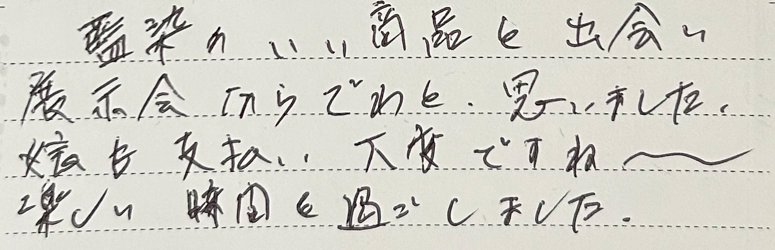 藍染のいい商品と出会い
展示会ならでわと、思いました、
嫁も支払い大変ですね〜
楽しい時間を過ごしました.